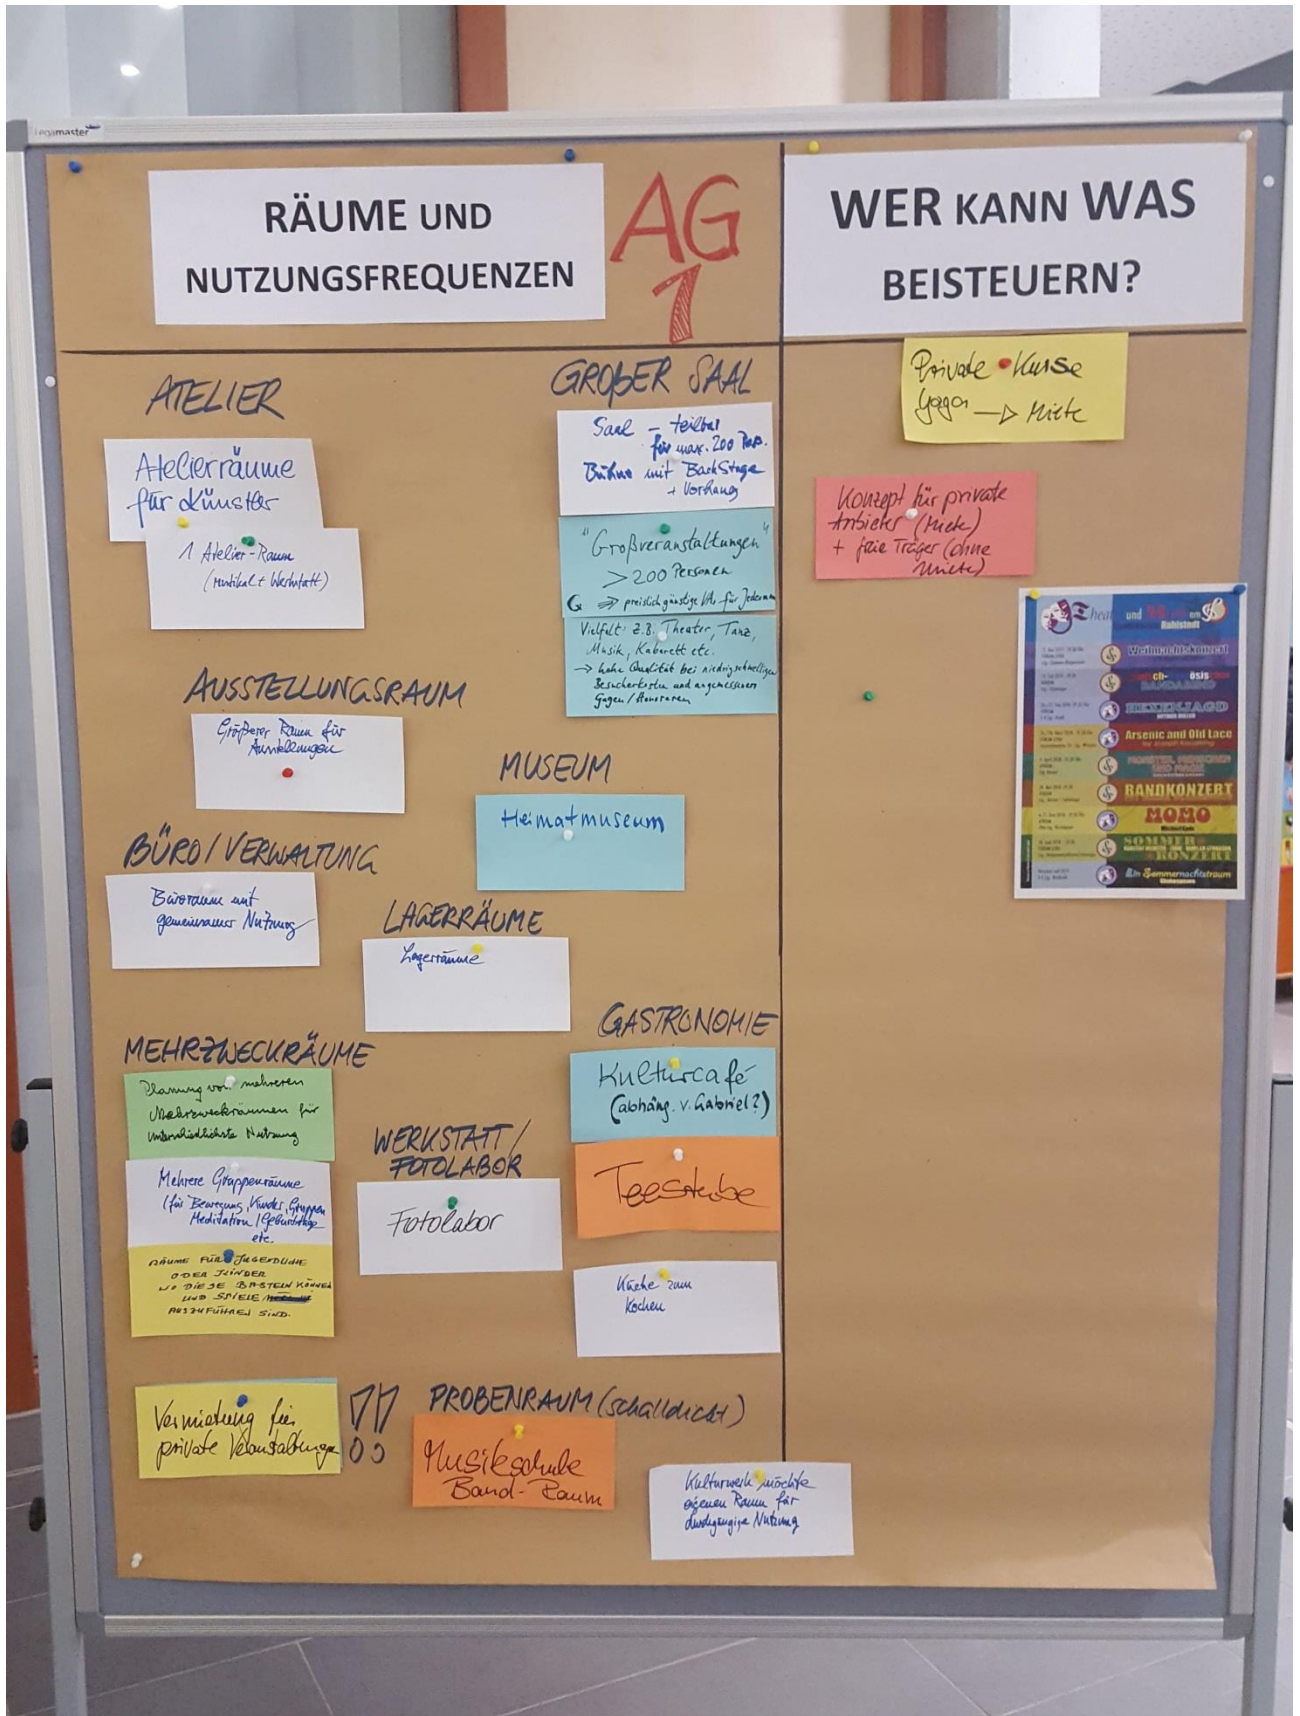 Legamaster
RÄUME UND
NUTZUNGSFREQUENZEN
AG
1
WER KANN WAS
BEISTEUERN?
ATELIER
Atelierräume
für Künstler
1 Atelier-Raum
+ Werkstatt)
AUSSTELLUNGSRAUM
Größerer Raum für
Ausstellungen
BÜRO/VERWALTUNG
Büroraum mit
gemeinsamer Nutzung
MEHRZWECKRÄUME
Planung von mehreren
Mehrzweckräumen für
unterschiedlichste Nutzung
Mehrere Gruppenräume
(für Bewegung, Kinder, Gruppen
Meditation/Geburtstage
etc.
RÄUME FÜR JUGENDLICHE
ODER KINDER
WO DIESE BASTELN KÖNNEN
UND SPIELE
AUSZUFÜHREN SIND.
Vermietung für
private Veranstaltungen
!!
GROßER SAAL
Saal – teilbar
für max. 200 Pers.
Bühne mit BackStage
+ Vorhang
"Großveranstaltungen"
> 200 Personen
G ⇒ preislich günstige VA für Jedermann
Vielfalt: z.B. Theater, Tanz,
Musik, Kabarett etc.
→ hohe Qualität bei niedrigschwelligen
Besucherkosten und angemessenen
Gagen/Honoraren
MUSEUM
Heimatmuseum
LAGERRÄUME
Lagerräume
WERKSTATT/
FOTOLABOR
Fotolabor
GASTRONOMIE
Kulturcafé
(abhäng. v. Gabriel?)
Teestube
Küche zum
Kochen
PROBENRAUM (schalldicht)
Musikschule
Band-Raum
Kulturwerk möchte
eigenen Raum für
durchgängige Nutzung
Private Kurse
Yoga → Miete
Konzept für private
Anbieter (Miete)
+ freie Träger (ohne
Miete)
Theater und Musik am
Rahlstedt
Weihnachtskonzert
HEXENJAGD
Arsenic and Old Lace
BANDKONZERT
MOMO
Michael Ende
SOMMER
KONZERT
Ein Sommernachtstraum